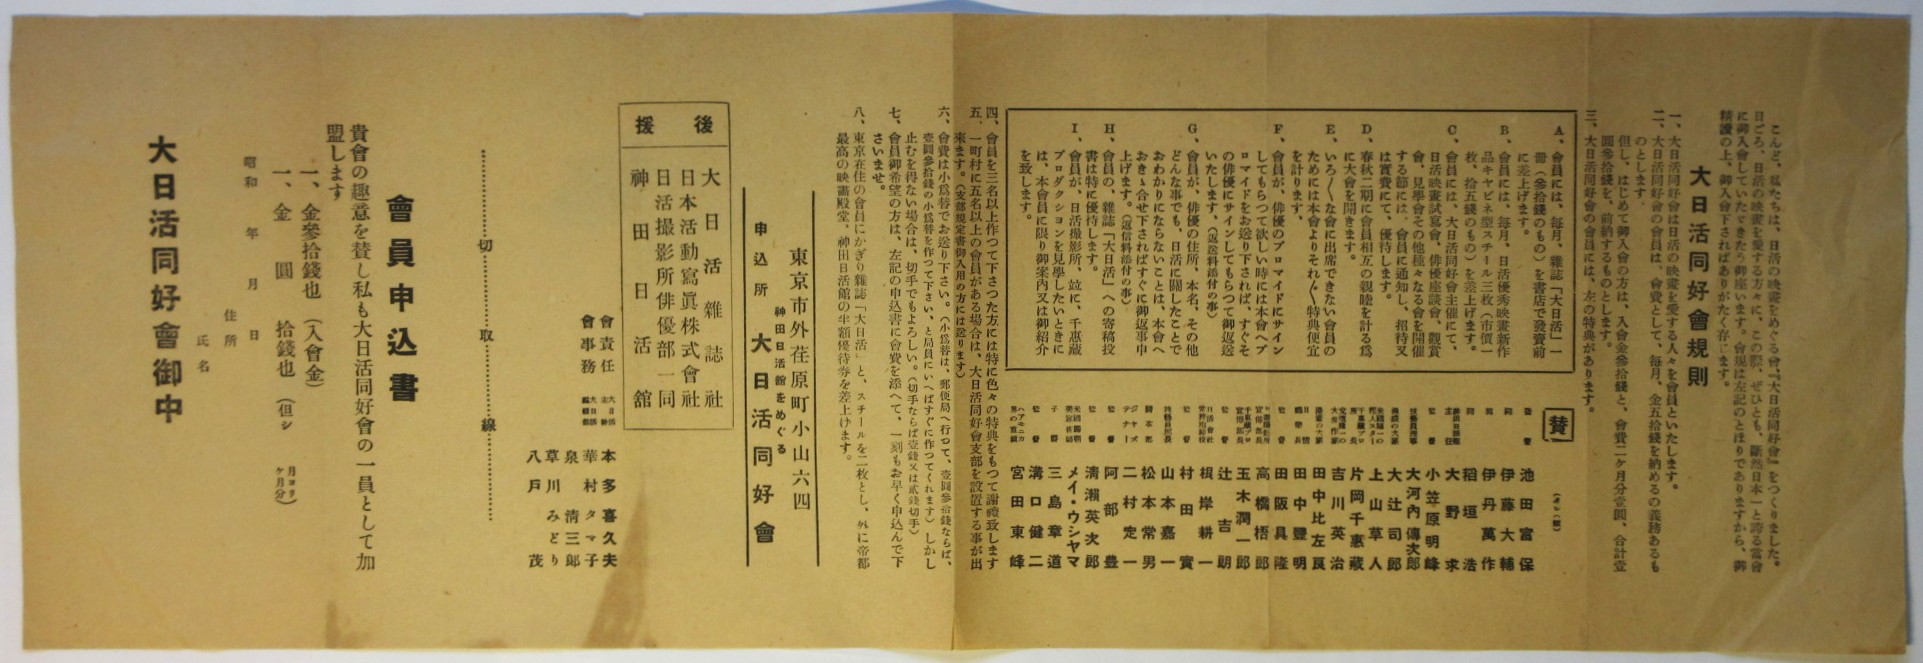 こんど、私たちは、日活の映畫をめぐる會『大日活同好會』をつくりました。
日ごろ、日活の映畫を愛する方々に、この際、ぜひとも、斷然日本一と誇る當會
に御入會していたゞきたう御座います。會規は左記のとほりでありますから、御
精讀の上、御入會下さればありがたく存じます。
大日活同好會規則
一、大日活同好會は日活の映畫を愛する人々を會員といたします。
二、大日活同好會の會員は、會費として、毎月、金五拾錢を納めるの義務あるも
のとします。
但し、はじめて御入會の方は、入會金參拾錢と、會費二ケ月分壹圓、合計壹
圓參拾錢を、前納するものとします。
三、大日活同好會の會員には、左の特典があります。
A、會員には、毎月、雜誌「大日活」一
冊(參拾錢のもの)を書店で發賣前
に差上げます。
B、會員には、毎月、日活優秀映畫新作
品キヤビネ型スチール三枚(市價一
枚、拾五錢のもの)を差上げます。
C、會員には、大日活同好會主催にて、
日活映畫試寫會、俳優座談會、觀賞
會、見學會その他種々なる會を開催
する節には、會員に通知し、招待又
は實費にて、優待します。
D、春秋二期に會員相互の親睦を計る爲
に大會を開きます。
E、いろ〳〵な會に出席できない會員の
ためには本會よりそれ〴〵特典便宜
を計ります。
F、會員が、俳優のプロマイドにサイン
してもらつて欲しい時には本會へプ
ロマイドをお送り下されば、すぐそ
の俳優にサインしてもらつて御返送
いたします、(返送料添付の事)
G、會員が、俳優の住所、本名、その他
どんな事でも、日活に關したことで
おわかりにならないことは、本會へ
おきゝ合せ下さればすぐに御返事申
上げます。(返信料添付の事)
H、會員の、雜誌「大日活」への寄稿投
書は特に優待します。
I、會員が、日活撮影所、竝に、千惠藏
プロダクションを見學したいときに
は、本會員に限り御案内又は御紹介
を致します。
賛
池田富保
伊藤大輔
伊丹萬作
稻垣浩
大野求
小笠原明峰
大河内傳次郎
大辻司郎
上山草人
片岡千惠藏
吉川英治
田中比左良
田中豐明
田阪具隆
高橋梧郎
玉木潤一郎
辻吉朗
根岸耕一
村田實
山本嘉一
松本常男
二村定一
阿部豊
清瀨英次郎
メイ・ウシヤマ
三島章道
溝口健二
宮田東峰
四、會員を三名以上作つて下さつた方には特に色々の特典をもつて謝禮致します
五、一町村に五名以上の會員がある場合は、大日活同好會支部を設置する事が出
來ます。(支部規定書御入用の方には送ります)
六、會費は小爲替でお送り下さい。(小爲替は、郵便局へ行つて、壹圓參拾錢ならば、
壹圓參拾錢の小爲替を作つて下さい、と局員にいへばすぐに作つてくれます)しかし
止むを得ない場合は、切手でもよろしい。(切手ならば壹錢又は貳錢切手)
七、會員御希望の方は、左記の申込書に會費を添へて、一刻もお早く申込んで下
さいませ。
八、東京在住の會員にかぎり雜誌「大日活」と、スチールを二枚とし、外に帝都
最高の映畫殿堂、神田日活館の半額優待券を差上げます。
東京市外荏原町小山六四
神田日活館をめぐる
申込所 大日活同好會
後援
大日活雜誌社
日本活動寫眞株式會社
日活撮影所俳優部一同
神田日活館
會責任 本多喜久夫
會事務 華村タマ子
泉清三郎
草川みどり
八戸茂
切取線
會員申込書
貴會の趣意を賛し私も大日活同好會の一員として加
盟します
一、金參拾錢也(入會金)
一、金 圓 拾錢也(但シ 月ヨリ ケ月分)
昭和 年 月 日
住所
氏名
大日活同好會御中